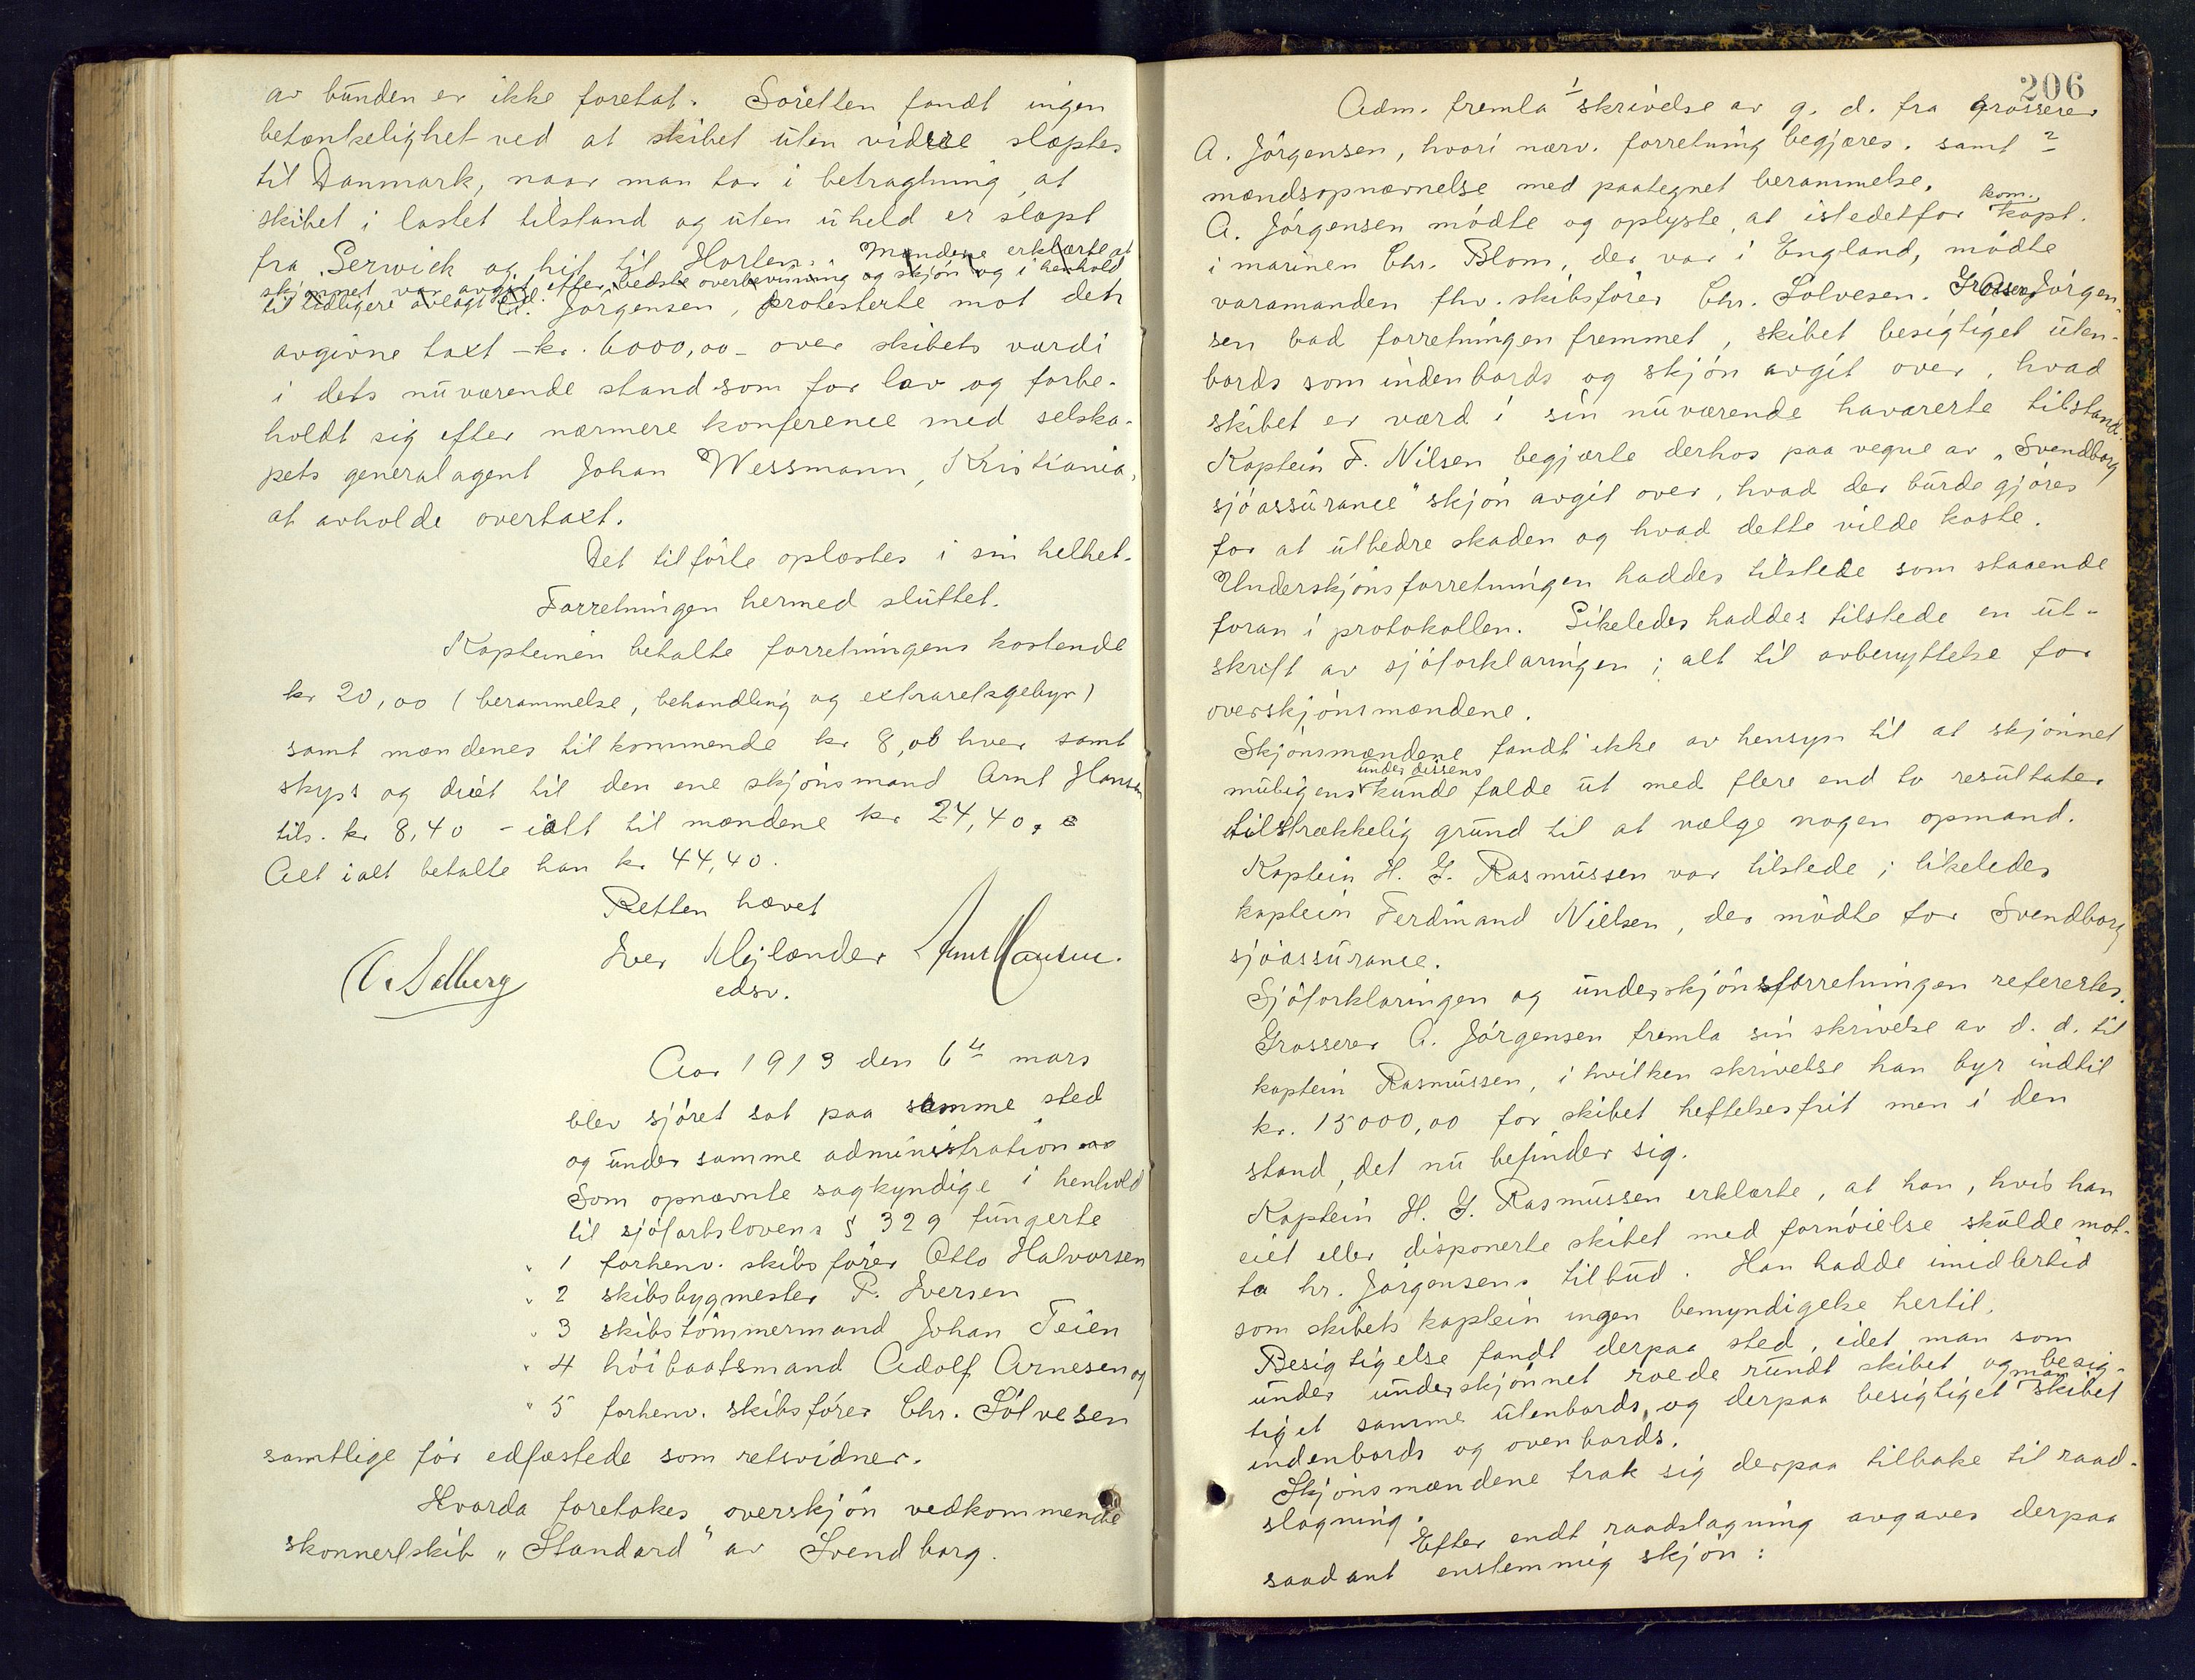 av bunden er ikke foretat. Söretten fandt ingen
betænkelighet ved at skibet uten videre slæptes
til Danmark, naar man tar i betragtning, at
skibet i lastet tilstand og uten uheld er slæpt
fra Lerwick og hit til Horten. Mændene erklærte at
skjønnet var avgit efter bedste overbevisning og skjøn og i henhold
til tidligere avlagt ed. Jörgensen, protesterte mot den
avgivne taxt – kr. 6000,00 – over skibets værdi
i dets nuværende stand som for lav og forbe-
holdt sig efter nærmere konference med selska-
pets generalagent Johan Wessmann, Kristiania,
at avholde overtaxt.
Det tilförte oplæstes i sin helhet.
Forretningen hermed sluttet.
Kapteinen betalte forretningens kostende
kr 20,00 (berammelse, behandling og extraretsgebyr)
samt mændenes tilkommende kr 8,00 hver samt
skyss og diæt til den ene skjönsmand Arnt Hansen
tils. kr 8,40 – ialt til mændene kr 24,40.
Alt ialt betalte han kr 44,40.
Retten hævet
C. Salberg Iver Mejlænder Arnt Hansen.
edsv.
Aar 1913 den 6te mars
blev sjöret sat paa samme sted
og under samme administration
Som opnævnte sagkyndige i henhold
til sjöfartslovens § 329 fungerte
" 1 forhenv. skibsförer Otto Halvorsen
" 2 skibsbygmester P. Iversen
" 3 skibstömmermand Johan Teien
" 4 höibaatsmand Adolf Arnesen og
" 5 forhenv. skibsförer Chr. Sölvesen
samtlige för edfæstede som retsvidner.
Hvorda foretokes overskjön vedkommende
skonnertskib „Standard" av Svendborg.
206
Adm. fremla 1 skrivelse av g. d. fra grosserer
A. Jörgensen, hvori nærv. forretning begjæres, samt 2
mændsopnævnelse med paategnet berammelse.
kom.
A. Jörgensen mödte og oplyste, at istedetfor kapt.
i marinen Chr. Blom, der var i England, mödte
varamanden fhv. skibsförer Chr. Sölvesen. Grosserer Jörgen-
sen bad forretningen fremmet, skibet besigtiget uten-
bords som indenbords og skjön avgit over, hvad
skibet er værd i sin nuværende havarerte tilstand.
Kaptein F. Nilsen begjærte derhos paa vegne av „Svendborg
sjöassurance" skjön avgit over, hvad der burde gjöres
for at utbedre skaden og hvad dette vilde koste.
Underskjönsforretningen haddes tilstede som staaende
foran i protokollen. Likeledes haddes tilstede en ut-
skrift av sjöforklaringen; alt til avbenyttelse for
overskjönsmændene.
Skjönsmændene fandt ikke av hensyn til at skjönnet
under dissens
muligens kunde falde ut med flere end to resultater
tilstrækkelig grund til at vælge nogen opmand.
Kaptein H. G. Rasmussen var tilstede; likeledes
kaptein Ferdinand Nielsen, der mödte for Svendborg
sjöassurance.
Sjöforklaringen og underskjönsforretningen refererter.
Grosserer A. Jörgensen fremla sin skrivelse av d. d. til
kaptein Rasmussen, i hvilken skrivelse han byr indtil
kr. 15000,00 for skibet heftelsesfrit men i den
stand, det nu befinder sig.
Kaptein H. G. Rasmussen erklærte, at han, hvis han
eiet eller disponerte skibet med fornöielse skulde mot-
ta hr. Jörgensens tilbud. Han hadde imidlertid
som skibets kaptein ingen bemyndigelse hertil.
Besigtigelse fandt derpaa sted, idet man som
under underskjönnet roede rundt skibet og besig-
man
tiget samme utenbords, og derpaa besigtiget skibet
indenbords og ovenbords.
Skjönsmændene trak sig derpaa tilbake til raad-
slagning.
Efter endt raadslagning avgaves derpaa
saadant enstemmig skjön: